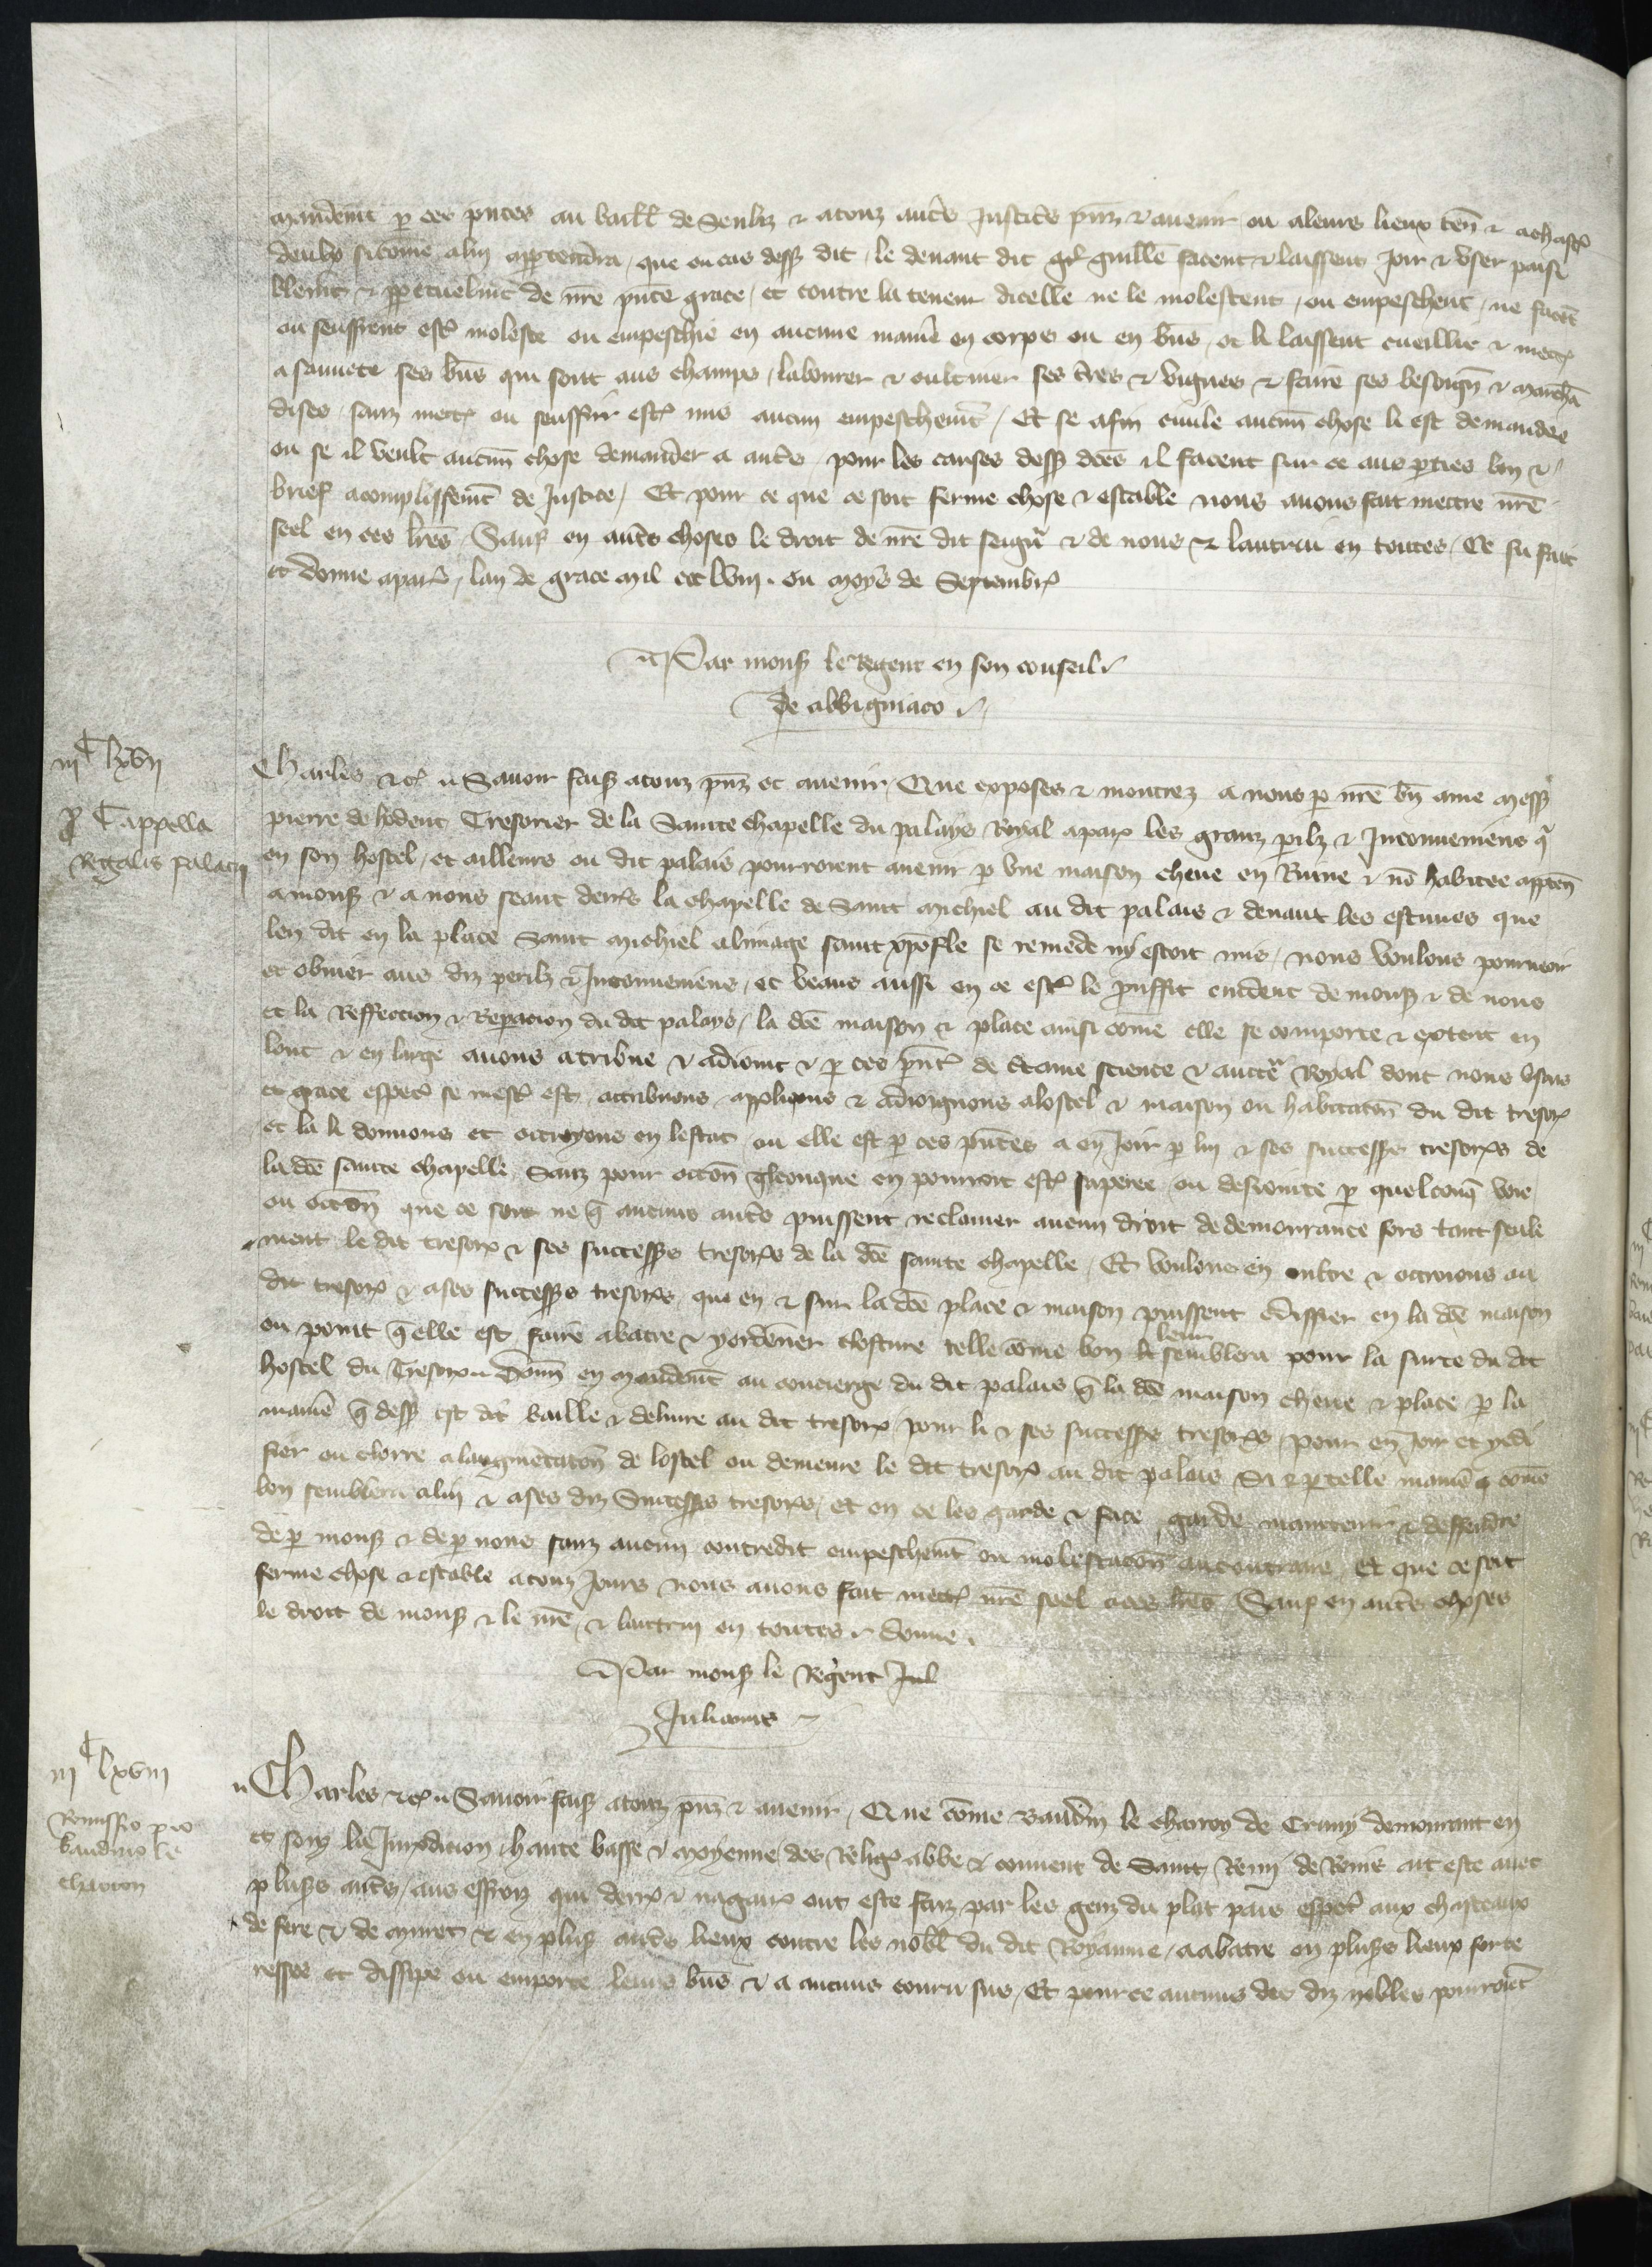 mandemt p ces pntes au baill de Senliz & a touz autres justiciers pnz & avenir ou a leurs lieux ten & a chascun
deulx si come a lui appartendra, que ou cas dess dit, le devant dit guille facent & laissent joir & user paisi
blemt & ppetuelmt de nre pnte grace, et contre la teneur dicelle ne le molestent, ou empeschent, ne facent
ou seuffrent estre moleste ou empeschie en aucune maniere en corps ou en biens, et li laissent cueillir & mectre
a sauvete ses biens qui sont aus champs, labourer & cultiver ses tres & vignes & faire ses besoign & marchan
dises, sanz mectre ou seuffrir estre mis aucun empeschemt, Et se afin civile aucun chose li est demandee
ou se il veult aucun chose demander a autres pour les causes dess dces il facent sur ce aus pties bon &
brief acomplissemt de justice, Et pour ce que ce soit ferme chose & estable nous avons fait mectre nre
seel en ces lres, Sauf en autres choses le droit de nre dit seigneur & de nous & lautrui en toutes, Ce fu fait
et donne a paris, lan de grace mil ccc lviii. ou moys de Septembre
Par mons le Regent en son conseil
de Alvigniaco
iii C lxvii
p Cappella
Regalis palacii
Charles &c Savoir faiss a touz pnz et avenir, Que exposes & montrez a nous p nre bn ame mess
pierre de hodenc Tresorier de la Sainte chapelle du palays Royal a paris les granz perilz & Inconveniens q
en son hostel, et ailleurs ou dit palais pourroient avenir p une maison cheue en Ruine & no habitee apparten
a mons & a nous seant derrs la chapelle de Saint michiel au dit palais & devant les estuves que
len dit en la place Saint michiel a limage saint xpofle se remede ny estoit mis, nous voulons pourveoir
et obvier aus diz perilz & Inconveniens, et veans aussi en ce estre le prouffit evident de mons & de nous
et la Reffection & Reparacion du dit palays, la dce maison & place ainsi come elle se comporte & extent en
lonc & en large avons atribue & adioint & p ces pnt de ctaine science & auctte Royal dont nous usons
et grace especl se mest est, attribuons appliquons & adioignons a lostel & maison ou habitaton du dit tresor
et la li donnons et octroyons en lestat ou elle est p ces pntes a en joir p lui & ses successrs tresorrs de
la dce sainte chapelle, Sanz pour occon qlconque en pourroit estre separee ou desiointe p quelconq voie
ou occon que ce soit ne q aucuns autres puissent reclamer aucun droit de demourance fors tant seule
ment le dit tresor & ses successrs tresorrs de la dce sainte chapelle, Et voulons en oultre & octroions au
dit tresor & a ses successrs tresorrs, que en & sur la dce place & maison puissent ediffier en la dce maison
ou point q elle est, faire abatre & y ordener closture telle come bon li leur semblera pour la surte du dit
hostel du Tresor Donn en mandemt au concierge du dit palais q la dce maison cheue & place p la
maniere q dess est dit baille & delivre au dit tresor, pour li & ses successrs tresorrs pour en joir et y edi
fier ou clorre a laugmentaton de lostel ou demeure le dit tresor au dit palais Si & p telle maniere q come
bon semblera a lui & a ses diz Successrs tresorrs, et en ce les garde & face garde maintenir & deffendre
de p mons & de p nous sanz aucun contredit empeschemt ou molestacon au contraire, Et que ce soit
ferme chose & estable a touz jours nous avons fait mectre nre seel a ces lres, Sauf en autres choses
le droit de mons & le nre, & lautrui en toutes, donne.
Par mons le Regent Jul
Julianus
iii C lxviii
Remissio pro
baudino le
charron
Charles &c Savoir faiss a touz pnz & avenir, Que come Baudin le charron de Crany demourant en
et souz la Juridiction, haute basse & moyenne, des Relig abbe & convent de Saint Remi de Reins ait este avec
pluss autres, aus effroiz qui derr & nagaires ont este faiz par les genz du plat pais especl aux chasteaux
de fere & de muret & en pluss autres lieux contre les nobl du dit Royaume, a abatre en pluss lieux forte
resses et dissipe ou emporte leurs biens & a aucuns couru sus, Et pour ce aucuns des diz nobles pourroient